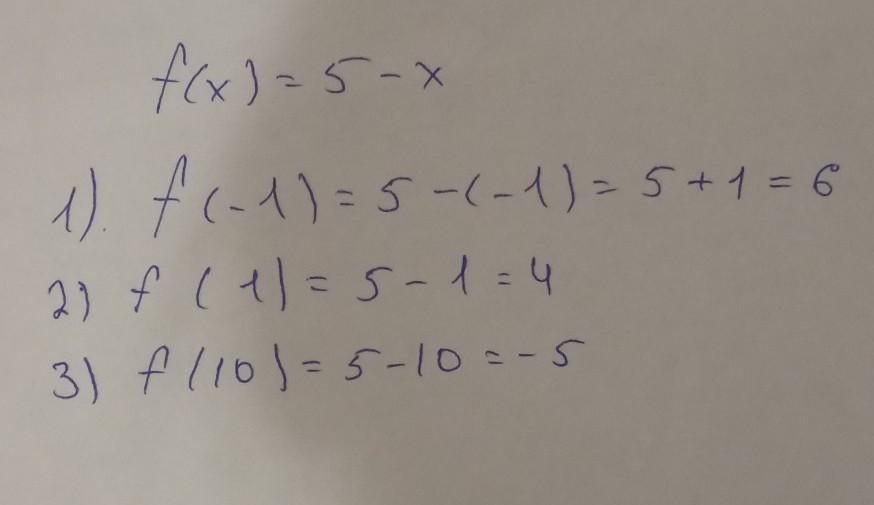 f(x) = 5 - x
1). f(-1) = 5 - (-1) = 5 + 1 = 6
2) f(1) = 5 - 1 = 4
3) f(10) = 5 - 10 = -5